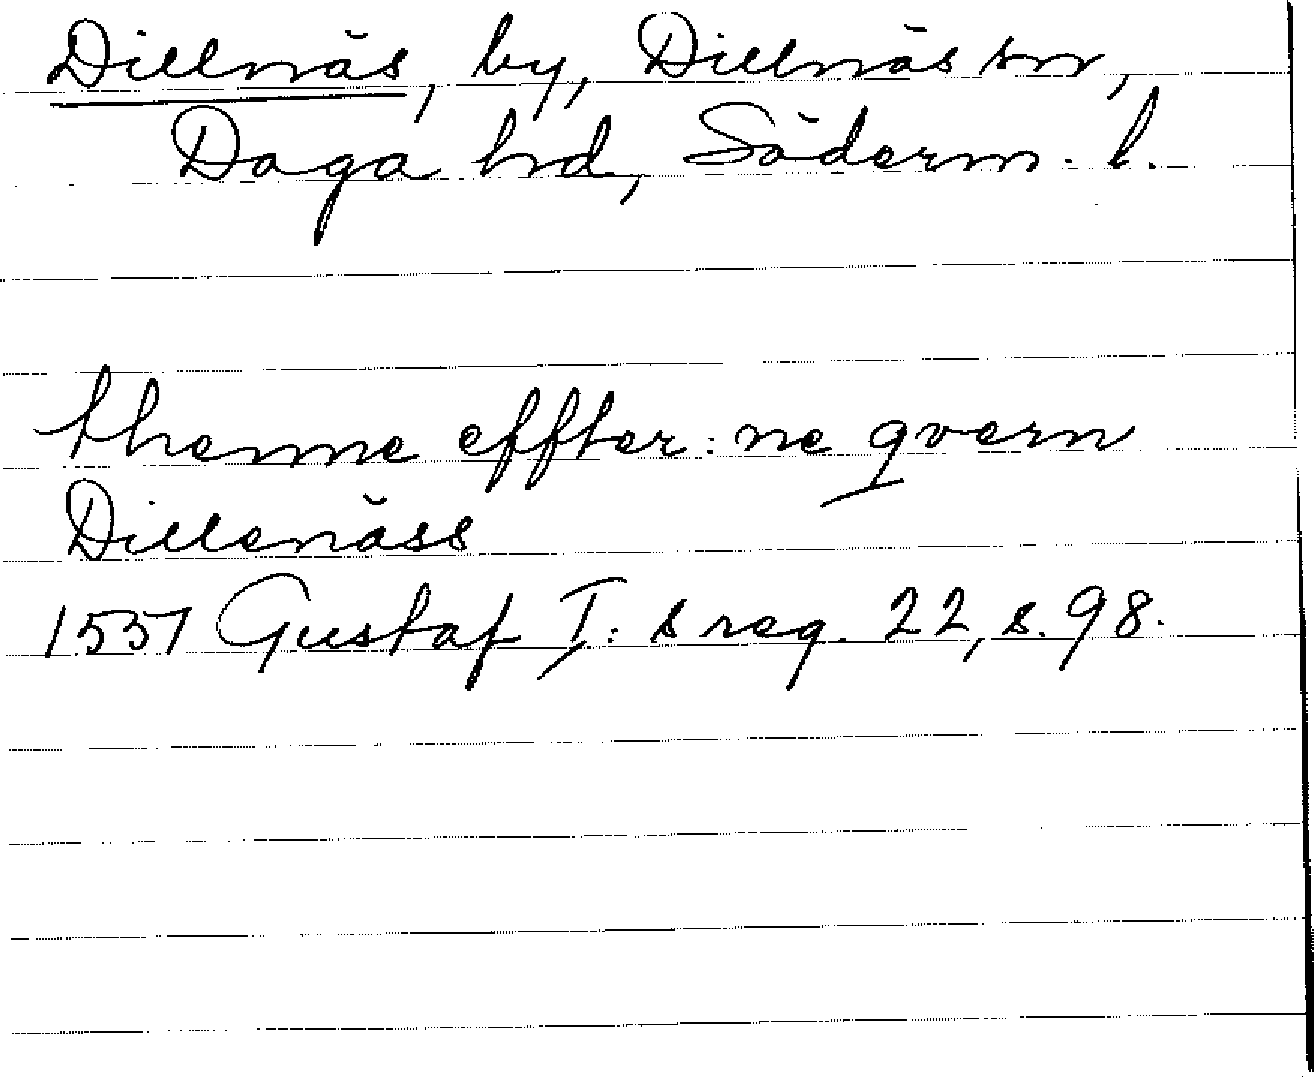 Dillnäs, by, Dillnäs sn,
Daga hd, Söderm. l.
thenne effter:ne qvern
Dillenäss
1551 Gustaf I:s reg. 22, s. 98.